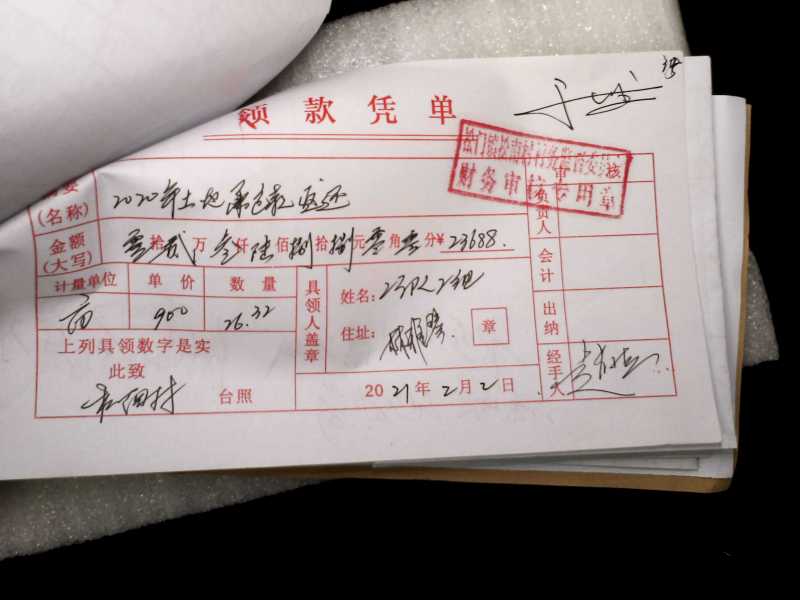 领款凭单
松门镇松南村村务监督委员会
财务审核专用章
摘要
(名称) 2020年土地承包款返还
审核
负责人
金额
(大写) 零拾贰万叁仟陆佰捌拾捌元零角零分¥23688.
会计
计量单位 单价 数量
亩 900 26.32
具领人盖章
姓名: 2队2组
住址:
章
出纳
上列具领数字是实
此致
台照
2021年2月2日
经手人